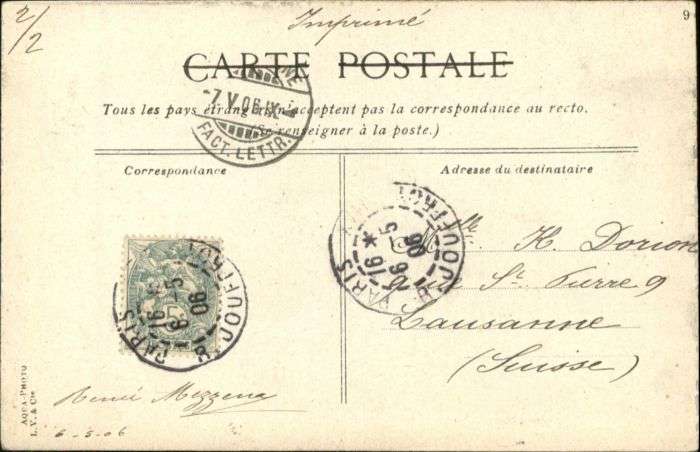 2/2
Imprimé
9
CARTE POSTALE
-7.V.06.IX-
FACT. LETTR.
Tous les pays étrangers n'acceptent pas la correspondance au recto.
(Se renseigner à la poste.)
Correspondance
Adresse du destinataire
PARIS
R. JOUFFROY
16
6-5
06
PARIS
R. JOUFFROY
16 *
6 5
06
Mlle H. Dorion
rue St Pierre 9
Lausanne
(Suisse)
René Mezzena
6-5-06
AQUA-PHOTO
L. V. & Cie